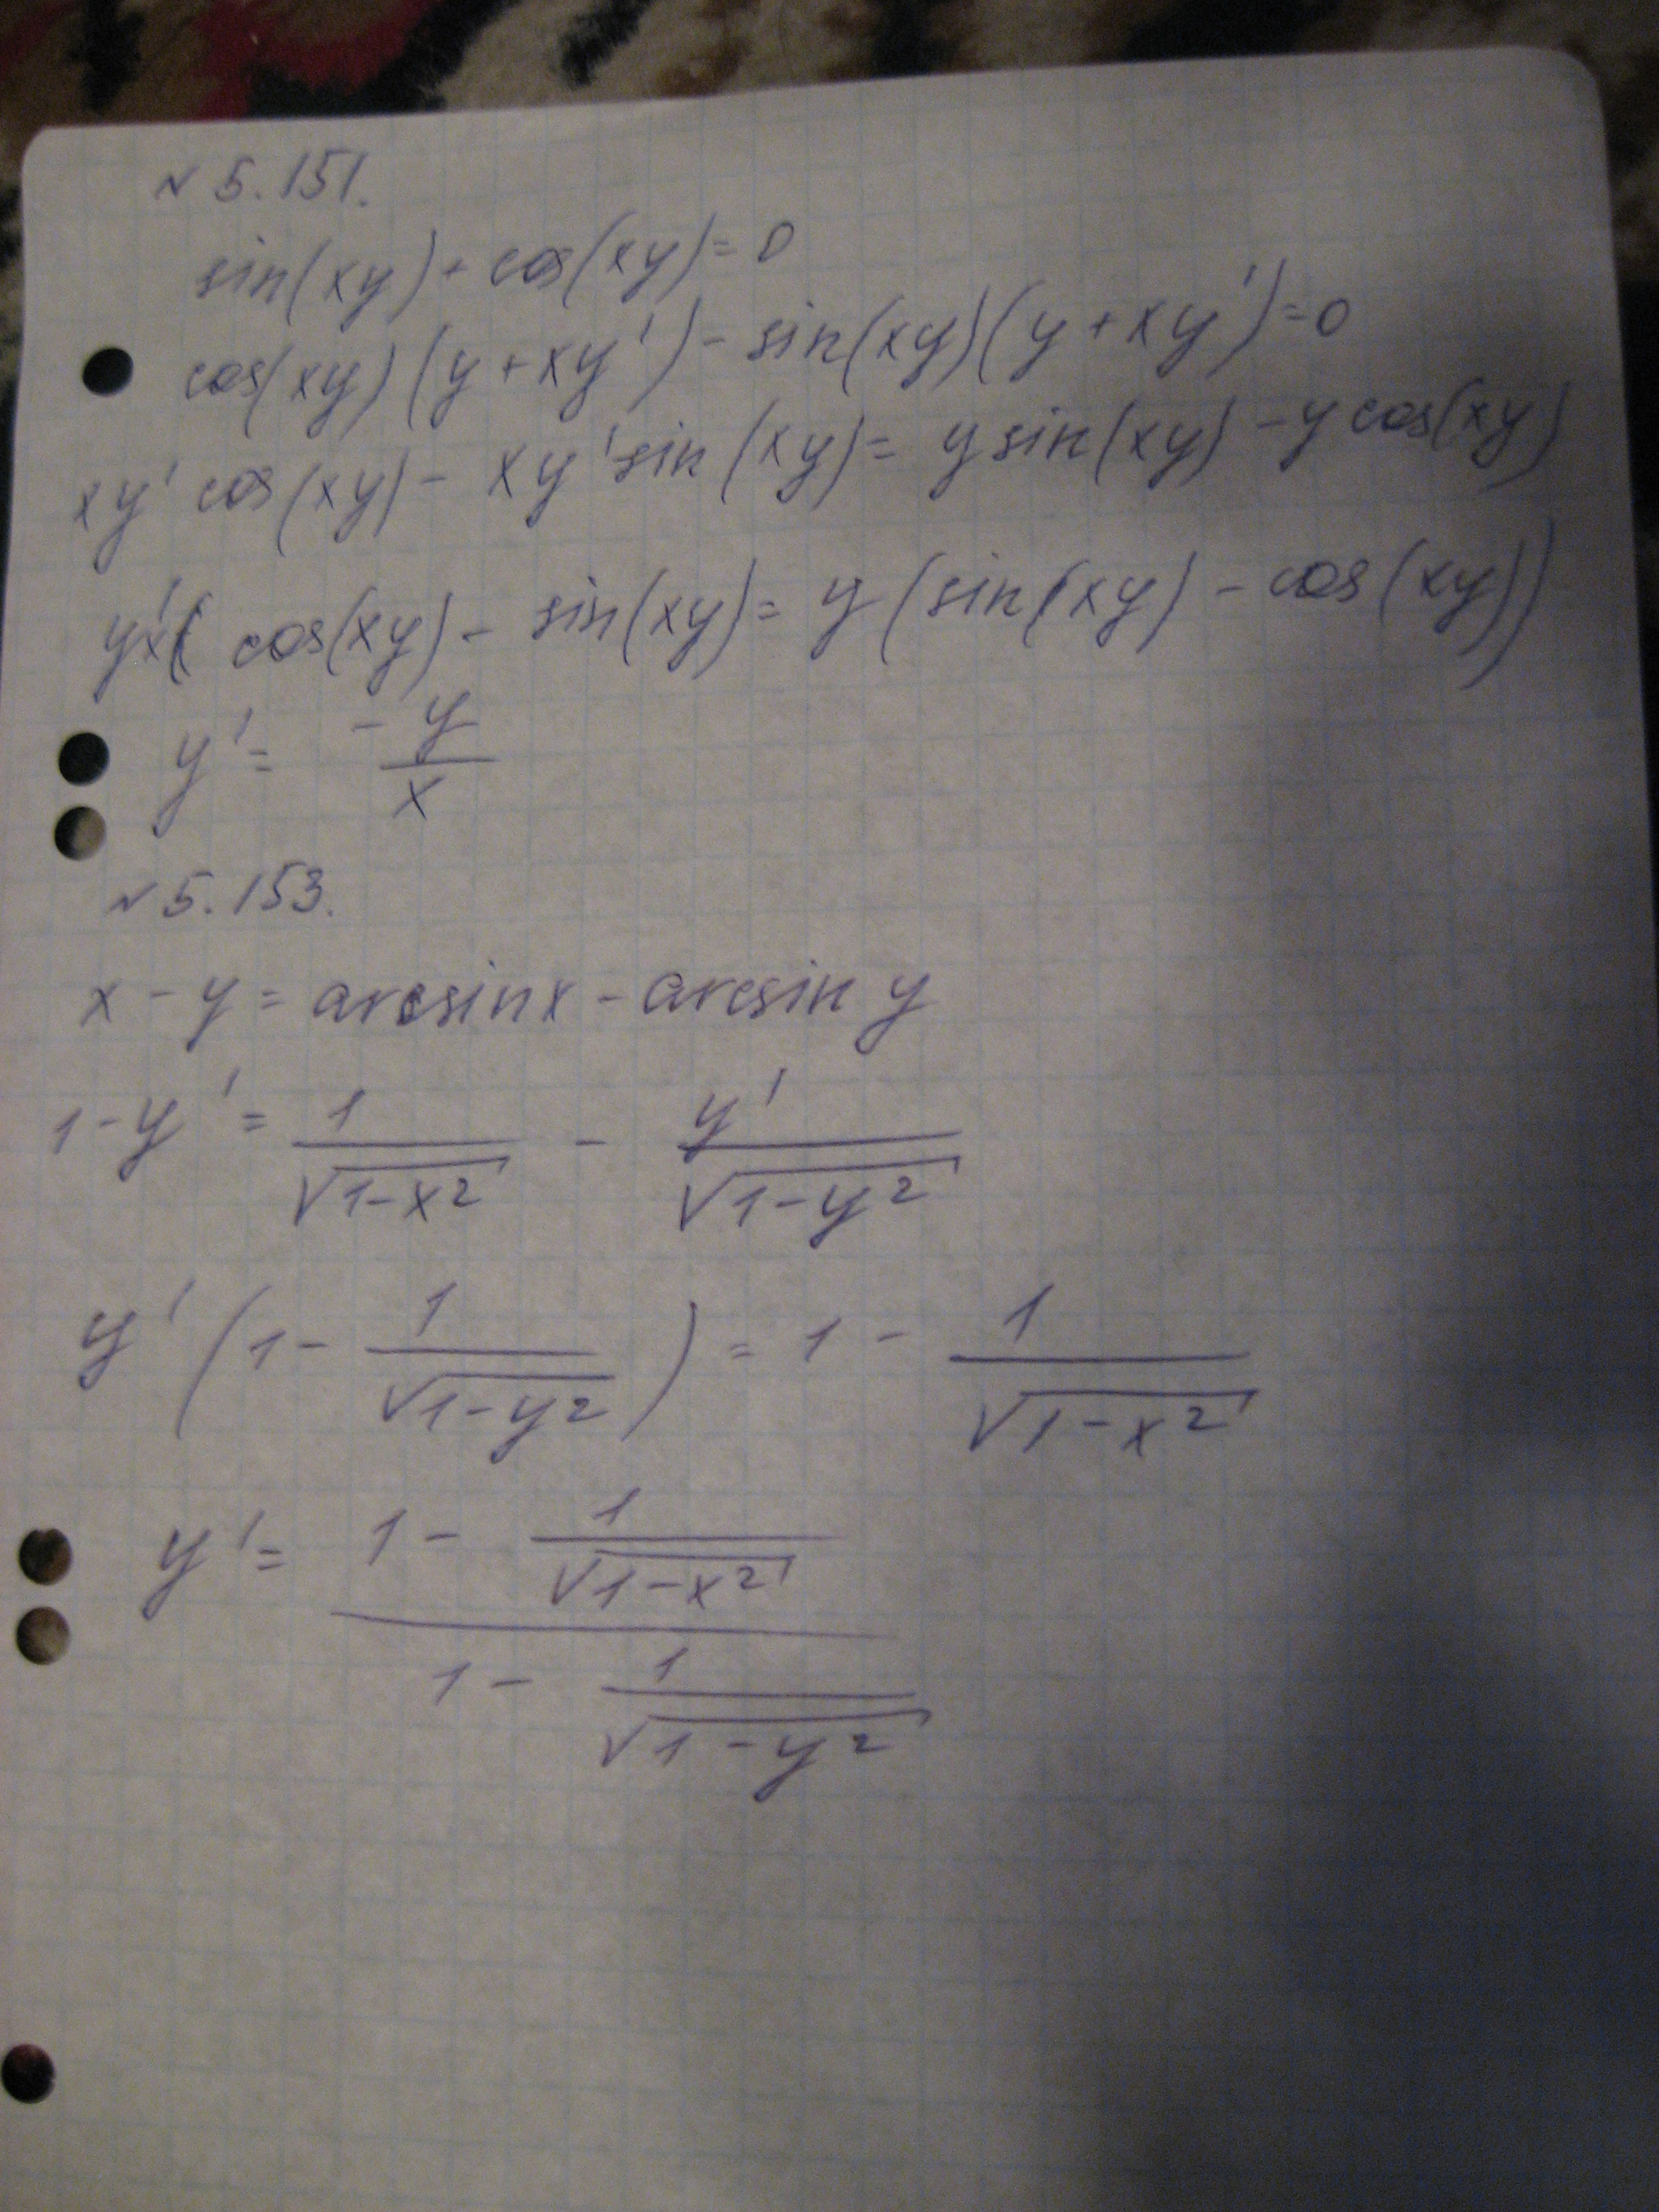 № 5.151.
sin(xy) + cos(xy) = 0
cos(xy)(y + xy') - sin(xy)(y + xy') = 0
xy' cos(xy) - xy' sin(xy) = y sin(xy) - y cos(xy)
y'x( cos(xy) - sin(xy) = y(sin(xy) - cos(xy))
y' = -y/x
№ 5.153.
x - y = arcsin x - arcsin y
1 - y' = 1/√(1-x²) - y'/√(1-y²)
y'(1 - 1/√(1-y²)) = 1 - 1/√(1-x²)
y' = (1 - 1/√(1-x²))/(1 - 1/√(1-y²))